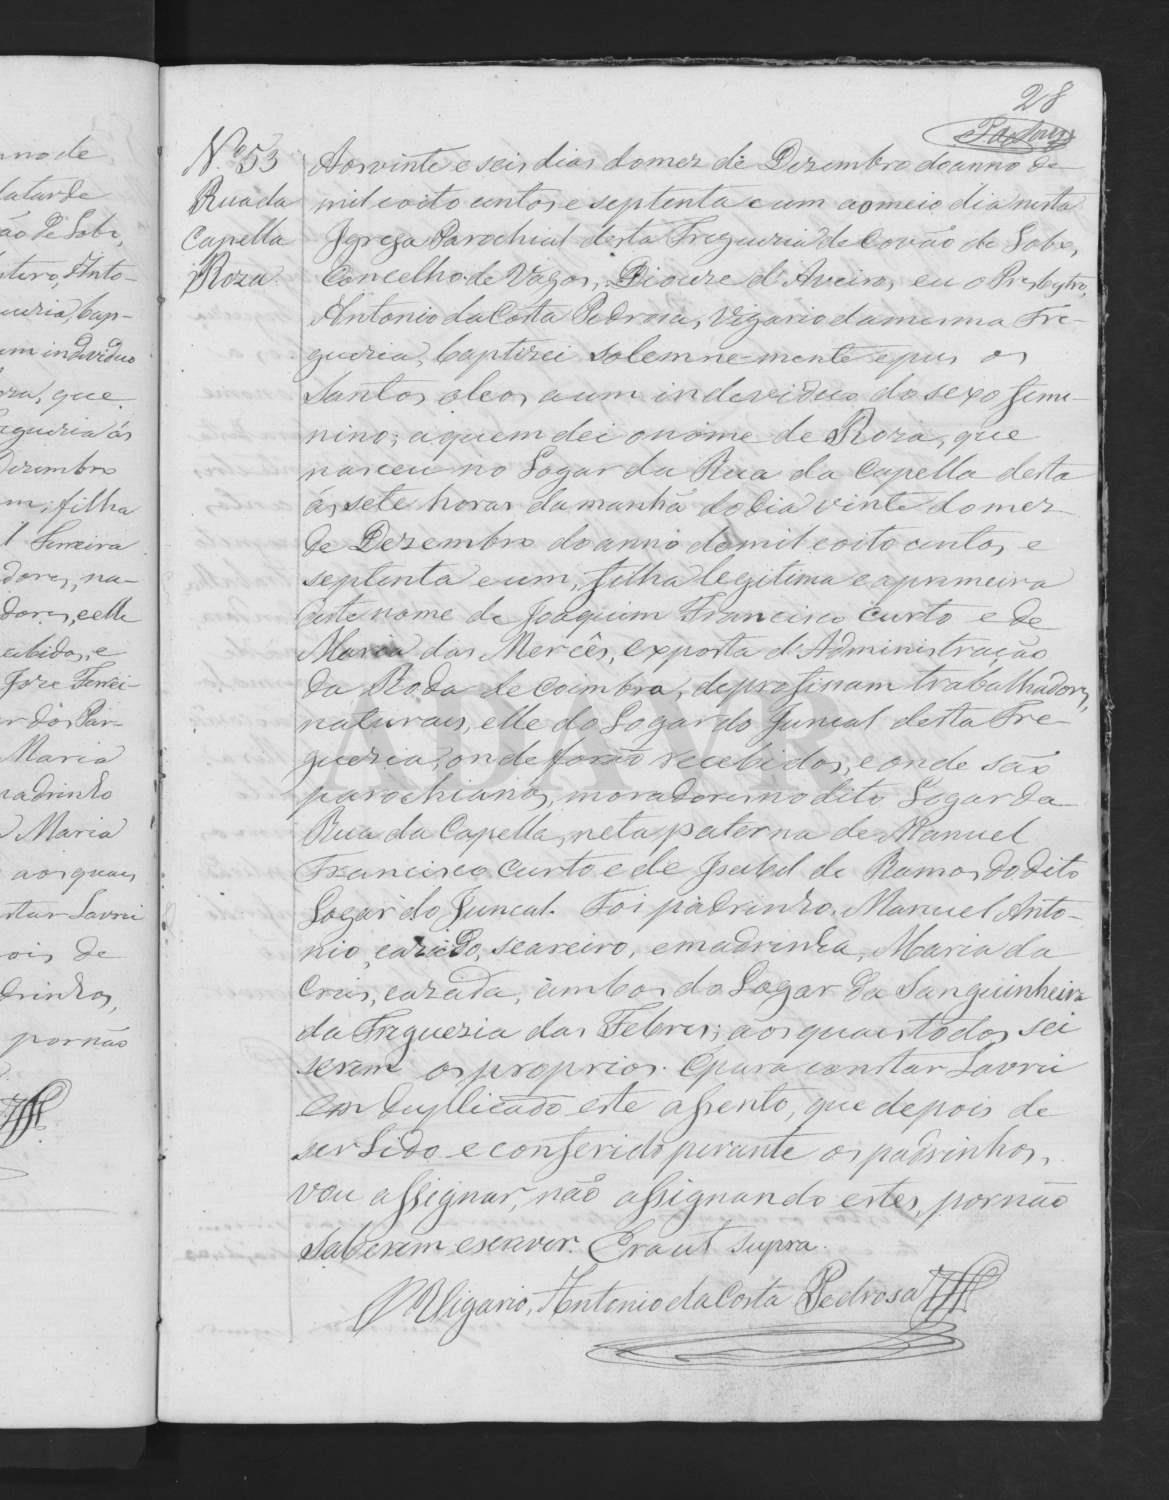 28
Nº 53
Rua da
Capella
Roza
Aos vinte e seis dias do mez de Dezembro do anno de
mil e oito centos e septenta e um ao meio dia nesta
Igreja Parochial desta Freguezia de Covão do Lobo,
Concelho de Vagos, Diocese d'Aveiro, eu o Presbytro,
Antonio da Costa Pedrosa, Vigario da mesma Fre-
guezia, baptizei solemne-mente e pus os
Santos oleos a um indeviduo do sexo femi-
nino; a quem dei o nome de Roza, que
nasceu no Logar da Rua da Capella desta
ás sete horas da manhã do dia vinte do mez
de Dezembro do anno de mil e oito centos, e
septenta e um; filha legitima e a primeira
deste nome de Joaquim Francisco Curto e de
Maria das Mercês, exposta d'Administração
da Roda de Coimbra, de profissam trabalhadores,
naturaes, elle do Logar do Juncal desta Fre-
guezia, onde forão recebidos, e onde são
parochianos, moradores no dito Logar da
Rua da Capella, neta paterna de Manuel
Francisco Curto e de Isabel de Ramos do dito
Logar do Juncal. Foi padrinho. Manuel Anto-
nio, cazado, seareiro, e madrinha, Maria da
Crus, cazada, ambos do Logar da Sanguinheira
da Freguezia das Febres; aos quaes todos sei
serem os proprios. E para constar Lavrei
em duplicado este assento, que depois de
ser Lido e conferido perante os padrinhos,
vou assignar, não assignando estes, por não
saberem escrever. Era ut supra.
O Vigario, Antonio da Costa Pedrosa
ADAVR
no de
ão de Lobo,
Anto-
guezia, bap-
um individuo
que
Freguezia ás
Dezembro
um; filha
Ferreira
dores, na-
dores, e elle
recebidos, e
Joze Ferrei-
Maria
padrinho
Maria
aos quaes
constar Lavrei
depois de
padrinhos,
por não